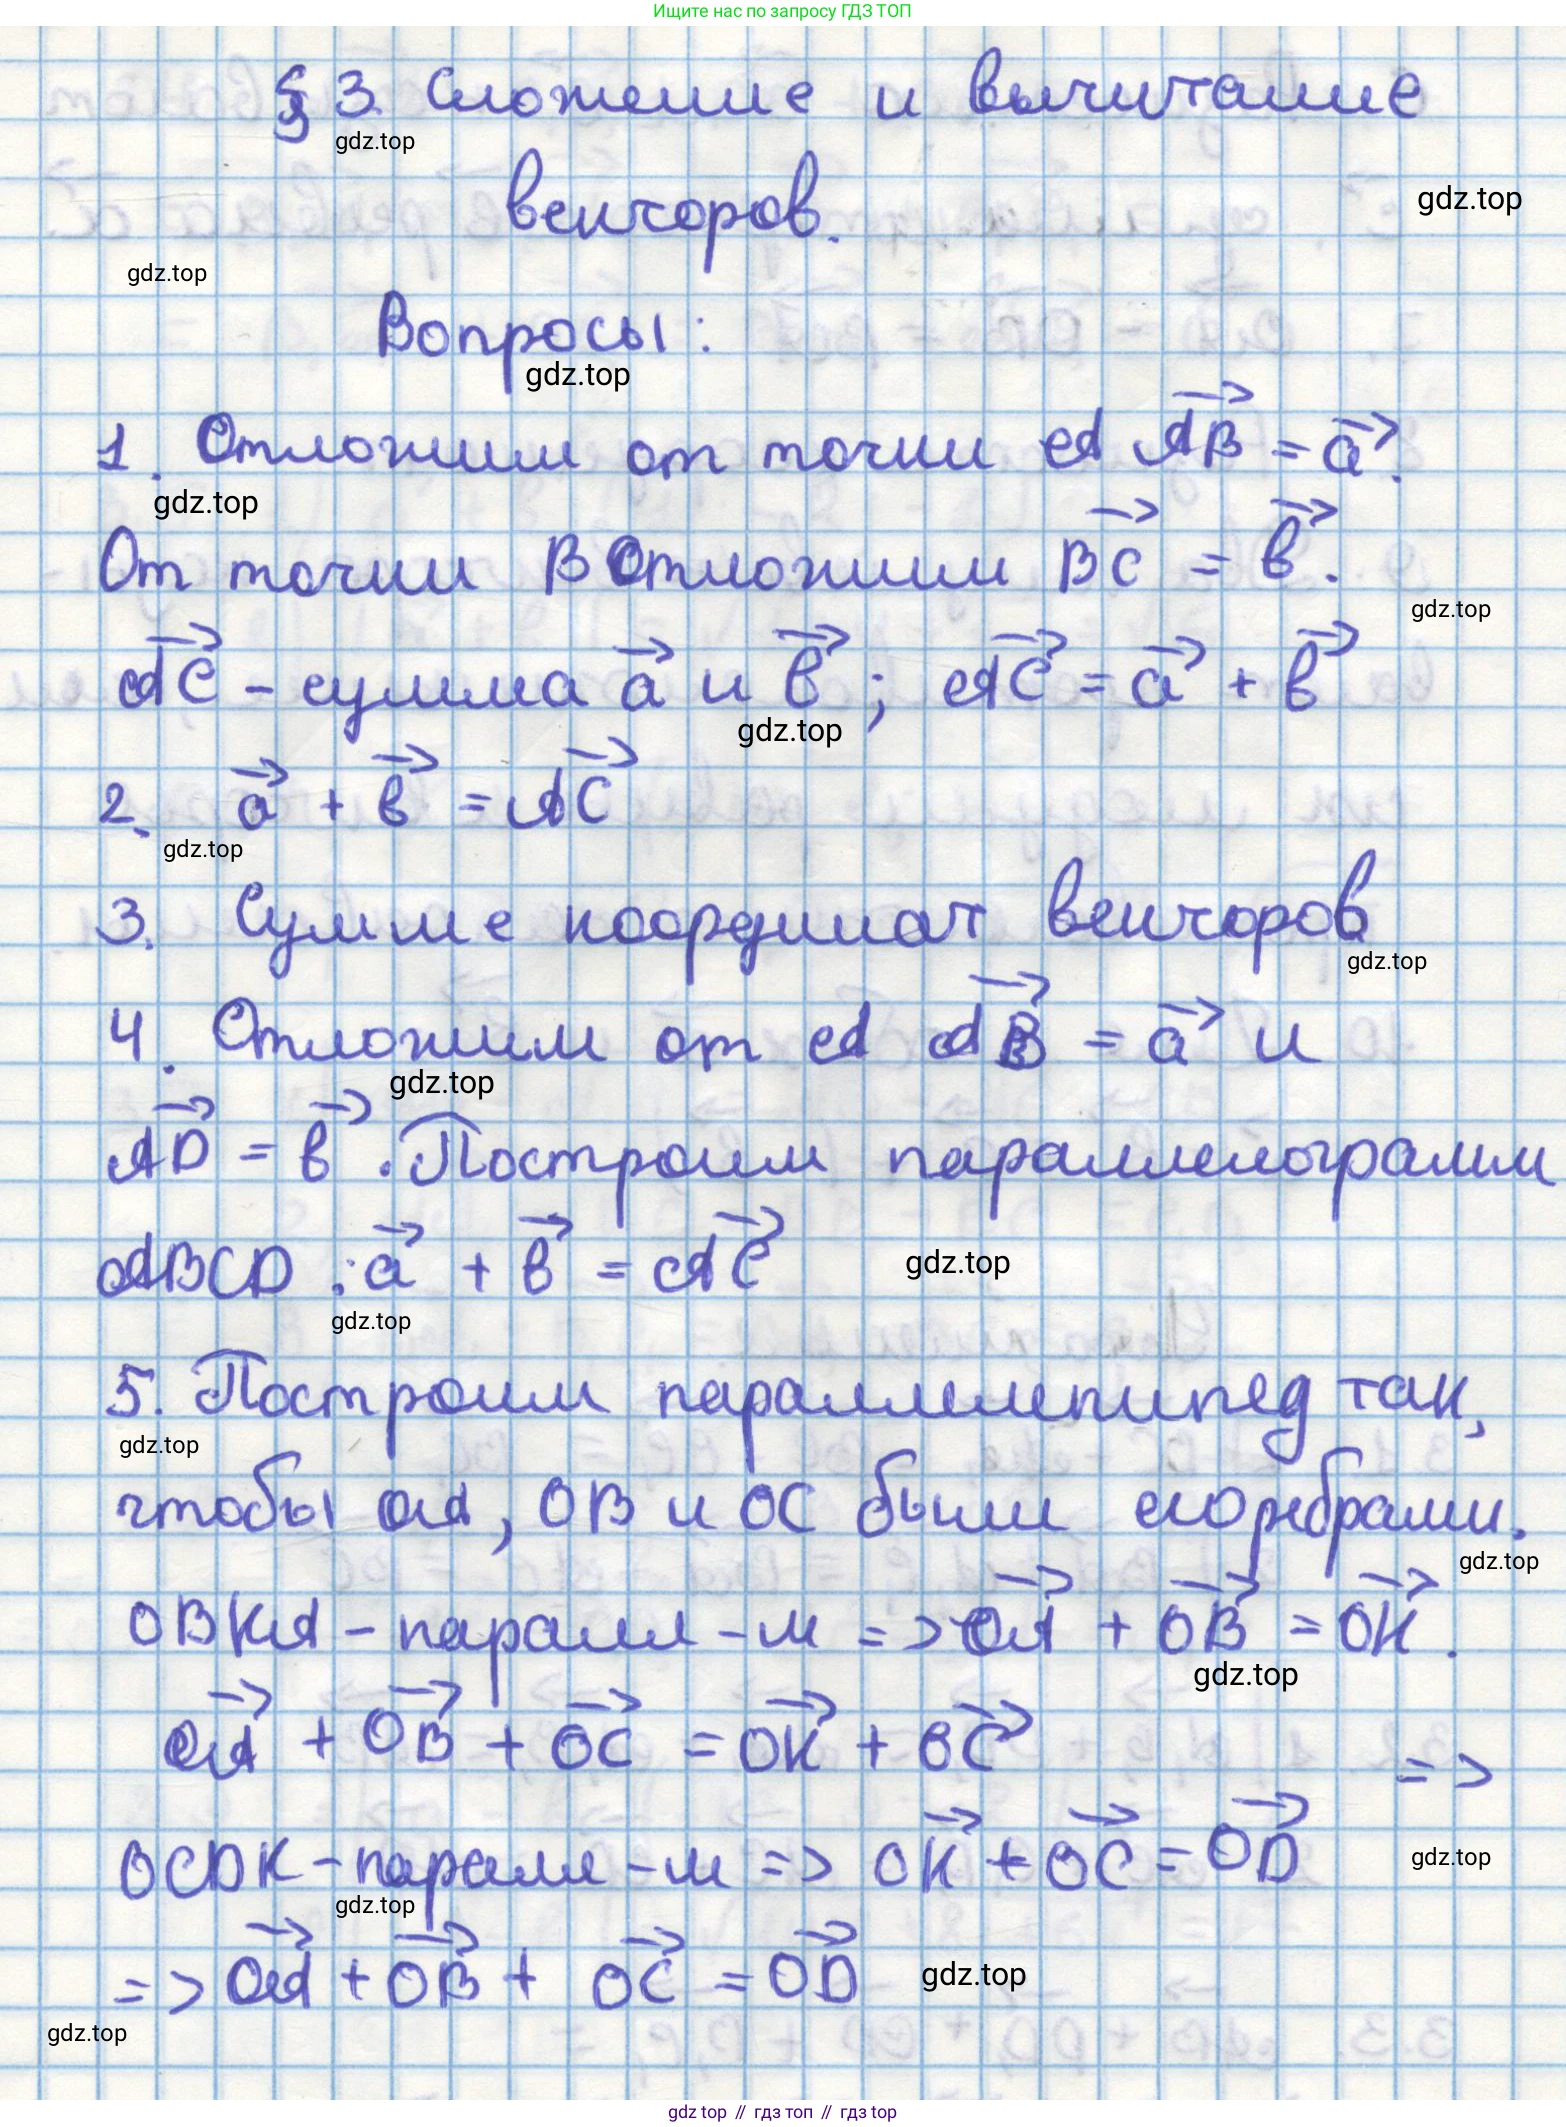 Ищите нас по запросу ГДЗ ТОП
§ 3. Сложение и вычитание
gdz.top
векторов.
gdz.top
gdz.top
Вопросы:
gdz.top
1. Отложим от точки A AB⃗ = a⃗.
gdz.top
От точки B Отложим BC⃗ = b⃗.
gdz.top
AC⃗ - сумма a⃗ и b⃗; AC⃗ = a⃗ + b⃗
gdz.top
2. a⃗ + b⃗ = AC⃗
gdz.top
3. Сумме координат векторов
gdz.top
4. Отложим от A AB⃗ = a⃗ и
gdz.top
AD⃗ = b⃗. Построим параллелограмм
ABCD : a⃗ + b⃗ = AC⃗
gdz.top
gdz.top
5. Построим параллелепипед так,
gdz.top
чтобы OA, OB и OC были его ребрами.
gdz.top
OBKA - паралл-м => OA⃗ + OB⃗ = OK⃗.
gdz.top
OA⃗ + OB⃗ + OC⃗ = OK⃗ + OC⃗
=>
OCDK - паралл-м => OK⃗ + OC⃗ = OD⃗
gdz.top
gdz.top
=> OA⃗ + OB⃗ + OC⃗ = OD⃗
gdz.top
gdz.top
gdz top // гдз топ // гдз top